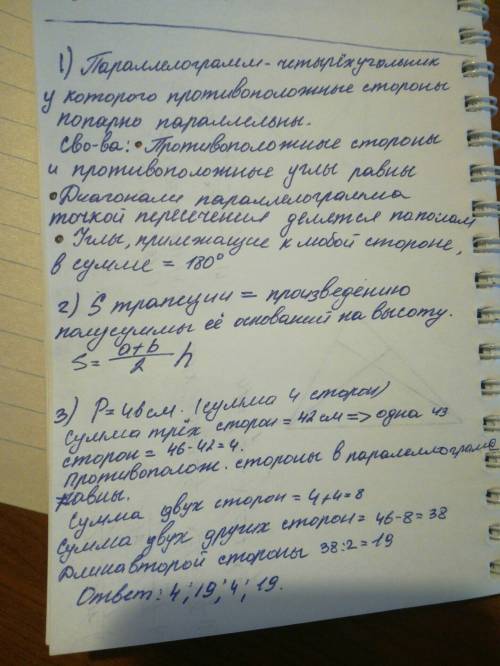 1) Параллелограмм - четырёхугольник
у которого противоположные стороны
попарно параллельны.
Сво-ва: • Противоположные стороны
и противоположные углы равны
• Диагонали параллелограмма
точкой пересечения делятся пополам
• Углы, прилежащие к любой стороне,
в сумме = 180°
2) S трапеции = произведению
полусуммы её оснований на высоту.
S = a+b/2 h
3) P = 46 см. (сумма 4 сторон)
Сумма трёх сторон = 42 см => одна из
сторон = 46 - 42 = 4.
Противополож. стороны в параллелограмме
равны.
Сумма двух сторон = 4+4=8
Сумма двух других сторон = 46-8=38
Длина второй стороны 38:2=19
Ответ: 4; 19; 4; 19.